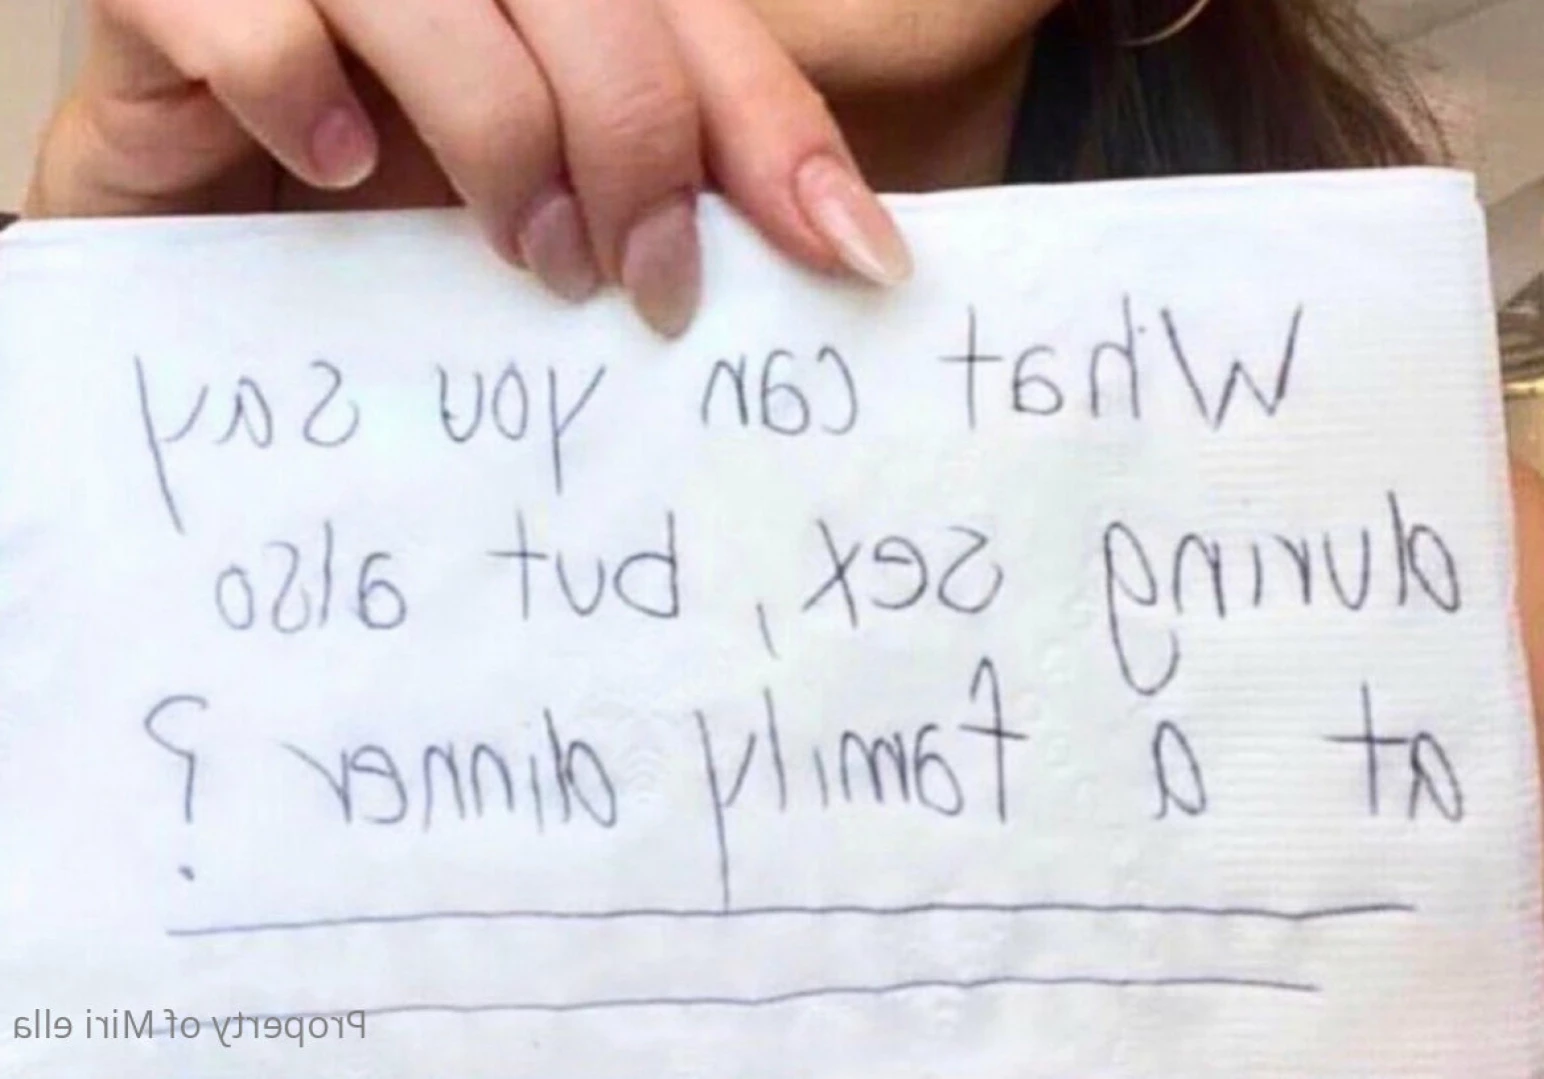 What can you say
during sex, but also
at a family dinner?
Property of Miri ella